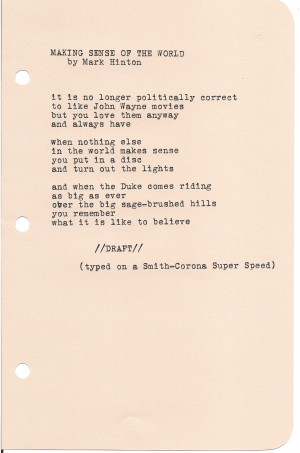 MAKING SENSE OF THE WORLD
by Mark Hinton
it is no longer politically correct
to like John Wayne movies
but you love them anyway
and always have
when nothing else
in the world makes sense
you put in a disc
and turn out the lights
and when the Duke comes riding
as big as ever
over the big sage-brushed hills
you remember
what it is like to believe
//DRAFT//
(typed on a Smith-Corona Super Speed)